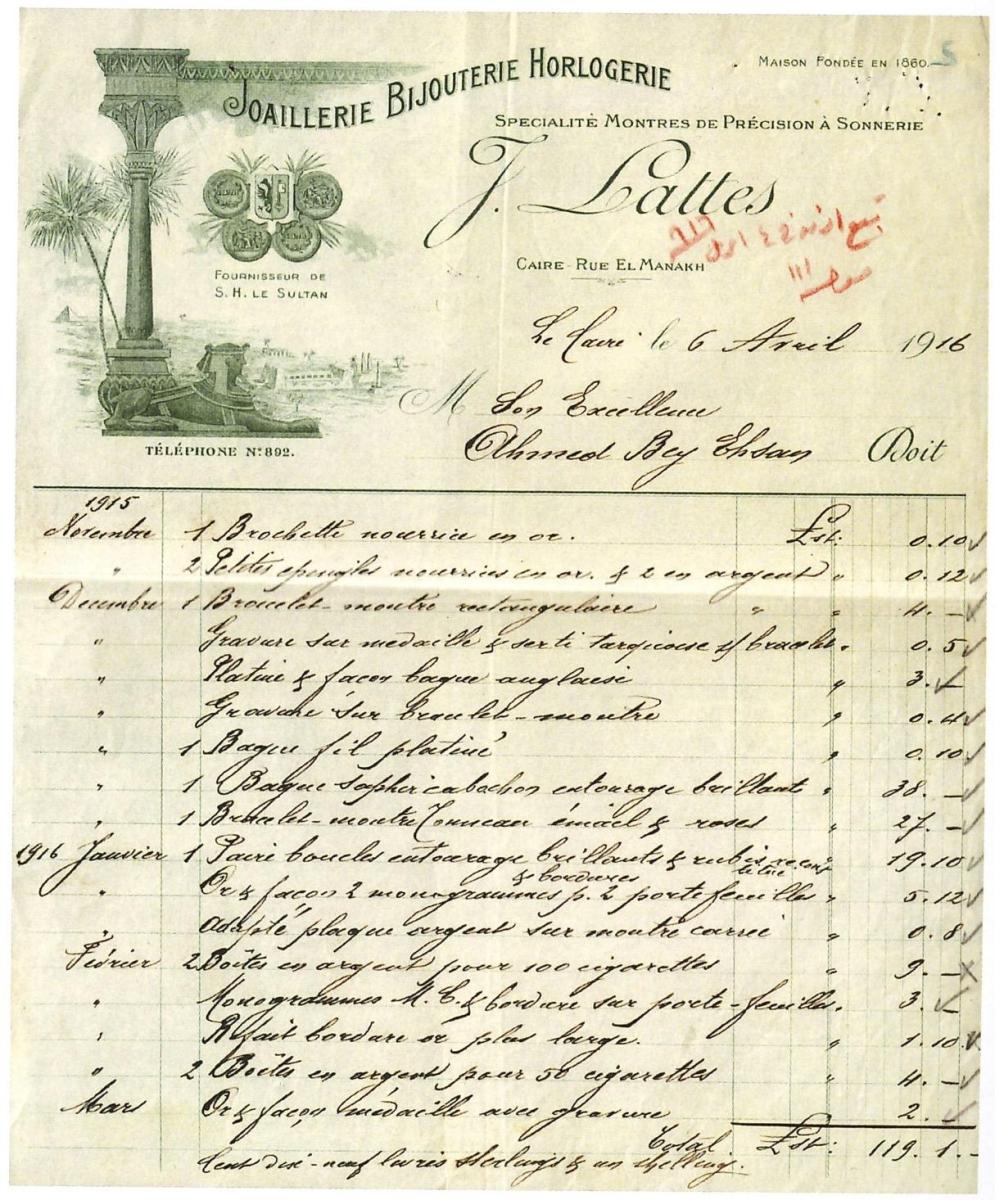 JOAILLERIE BIJOUTERIE HORLOGERIE
MAISON FONDÉE EN 1860. 5
SPECIALITÉ MONTRES DE PRÉCISION À SONNERIE
J. Lattes
FOURNISSEUR DE
S. H. LE SULTAN
CAIRE - RUE EL MANAKH
Le Caire le 6 Avril 1916
M Son Excellence
Ahmed Bey Ehsan Doit
TÉLÉPHONE Nº 892.
1915
Novembre 1 Brochette nourrice en or. £st: 0.10
" 2 Petites epingles nourrices en or. & 2 en argent " 0.12
Decembre 1 Bracelet-montre rectangulaire " " 4. -
" Gravure sur medaille & serti turquoise s/ bracelet. " 0. 5
" Platine & façon bague anglaise " 3. -
" Gravure sur bracelet-montre " 0. 4
" 1 Bague fil platine " 0. 10
" 1 Bague saphir cabochon entourage brillants " 38. -
" 1 Bracelet-montre Tonneau émail & roses " 27. -
1916 Janvier 1 Paire boucles entourage brillants & rubis reconstitué " 19. 10
" Or & façon 2 monogrammes & bordures p. 2 portefeuilles " 5. 12
" adapté plaque argent sur montre carrée " 0. 8
Février 2 Boîtes en argent pour 100 cigarettes " 9. -
" Monogrammes M. C. & bordure sur porte-feuilles. " 3.
" Refait bordure or plus large. " 1. 10
" 2 Boîtes en argent pour 50 cigarettes " 4. -
Mars Or & façon médaille avec gravure 2.
Total £st: 119. 1. -
Cent dix-neuf livres sterlings & un shelling.